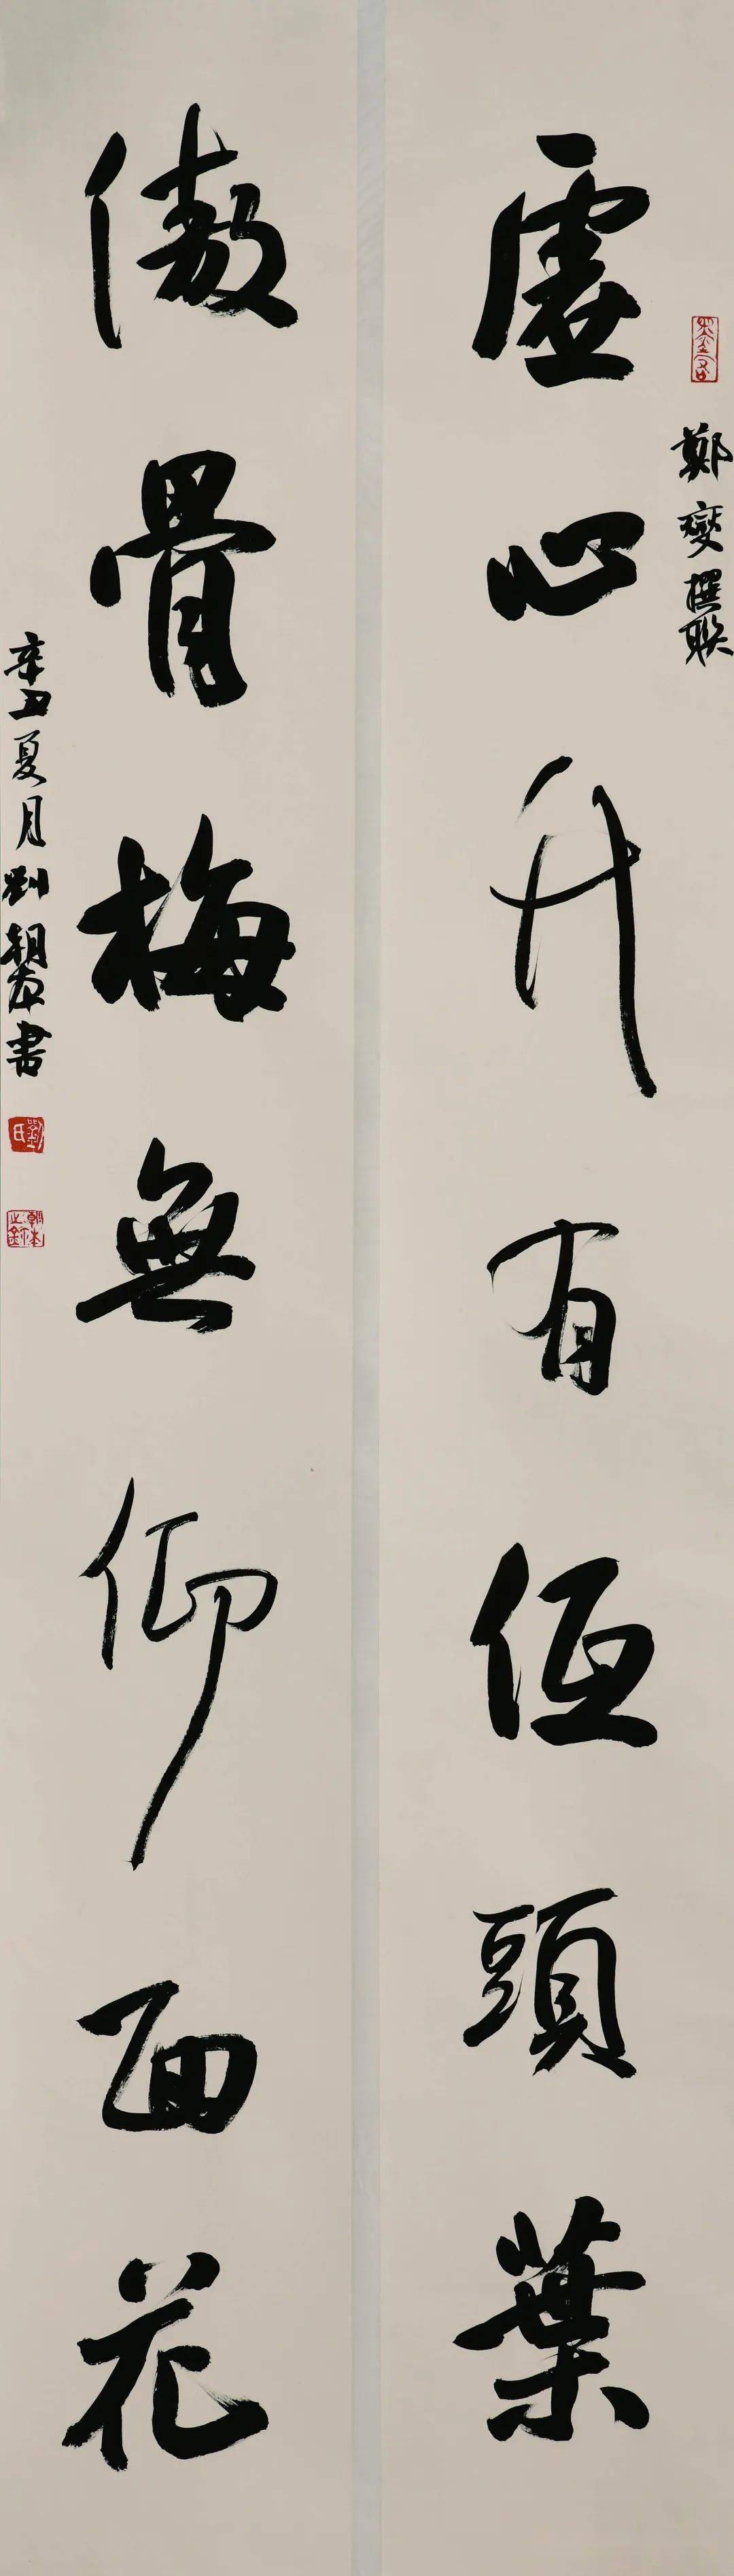 鄭燮撰聯
虛心竹有低頭葉
傲骨梅無仰面花
辛丑夏月劉朝本書
劉氏